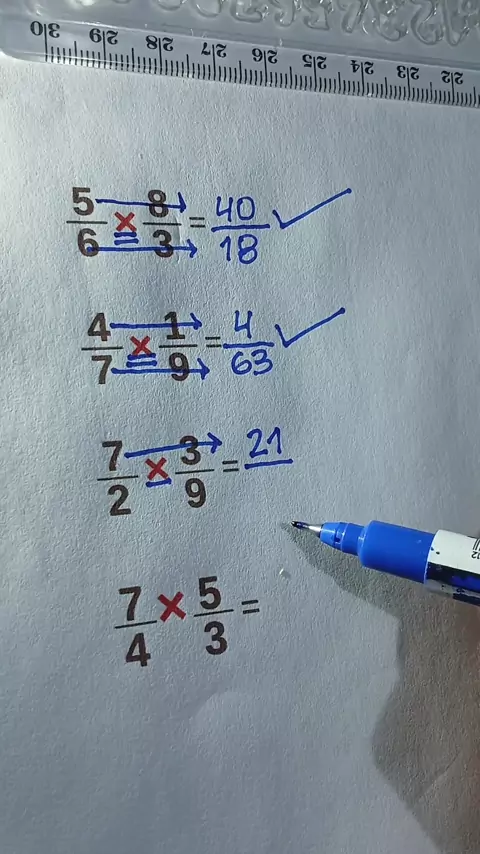 30 29 28 27 26 25 24 23 22
5/6 × 8/3 = 40/18 ✓
4/7 × 1/9 = 4/63 ✓
7/2 × 3/9 = 21/
7/4 × 5/3 =